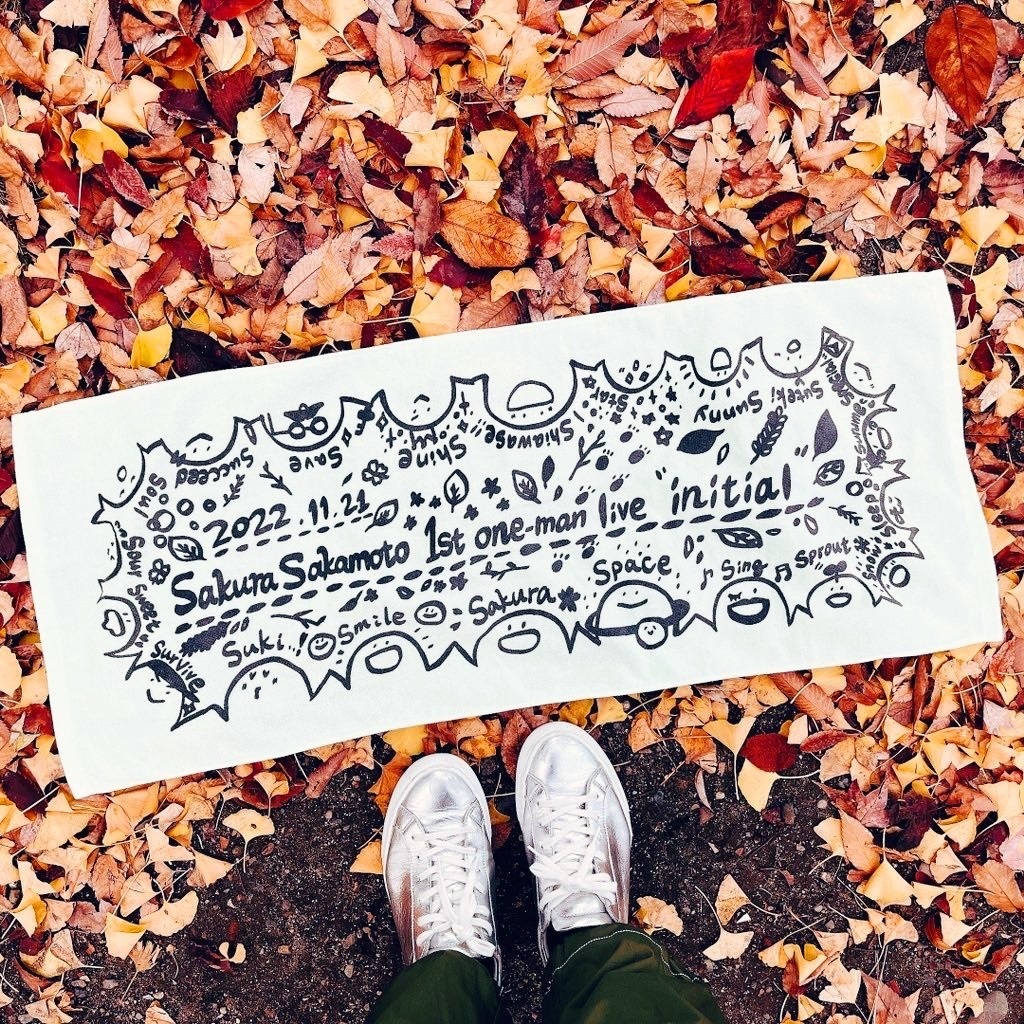 2022.11.21
Sakura Sakamoto 1st one-man live initial
Soul
Succeed
Save
Shine
My☆
Shiawase!!
Star
Sunny
Suteki
Special!
Sleep
Snow
Sprout
Sing
Space
Sakura
Smile
Suki!
Survive
Sour Sweet